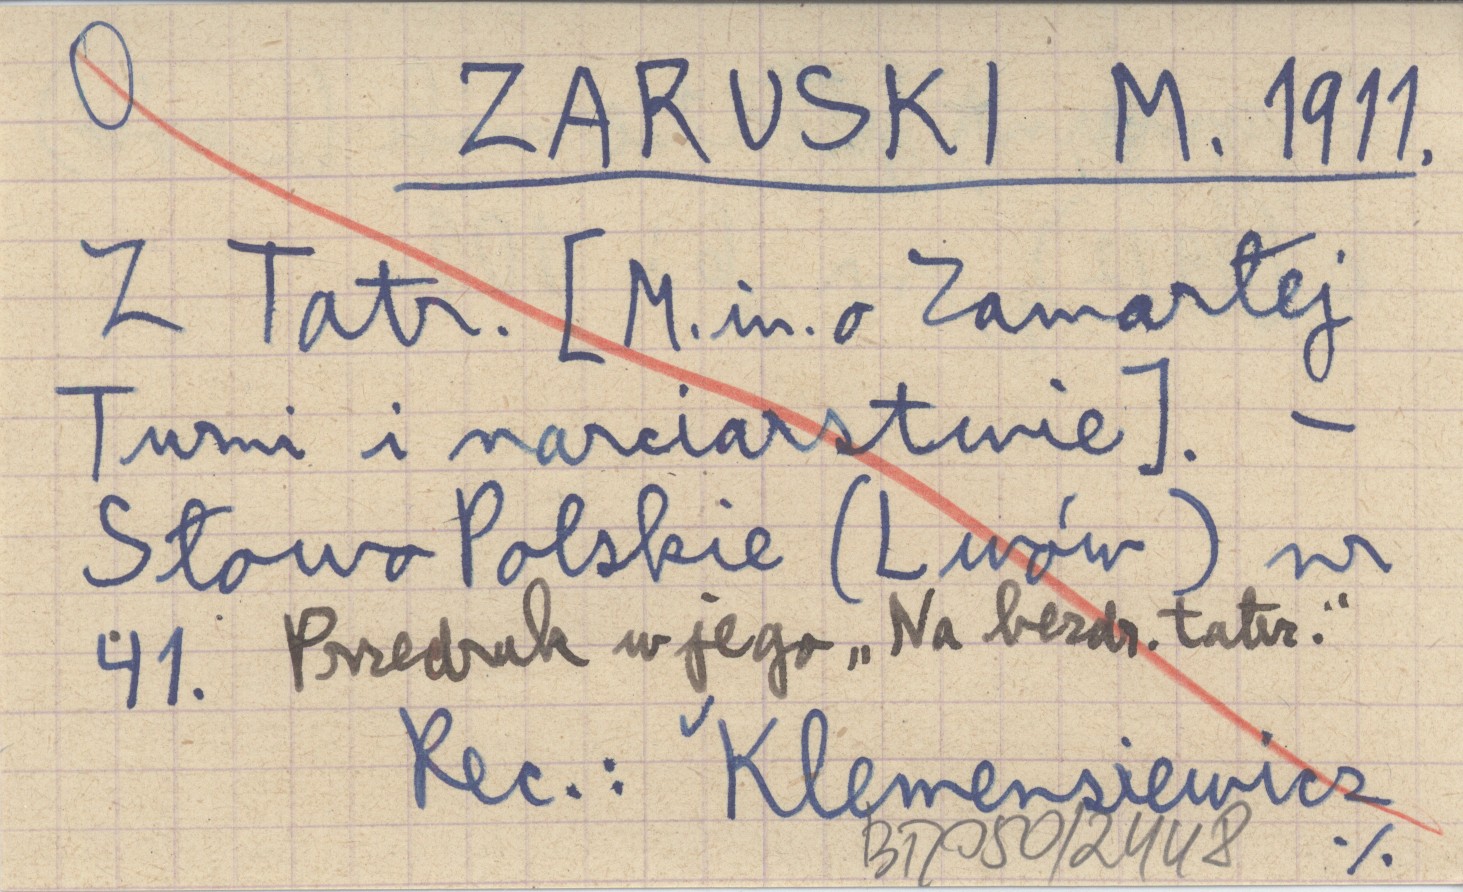 0
ZARUSKI M. 1911.
Z Tatr. [M.in. o Zamarłej
Turni i narciarstwie]. –
Słowo Polskie (Lwów) nr
41. Przedruk w jego „Na bezdr. tatrz."
Rec.: Klemensiewicz
·/.